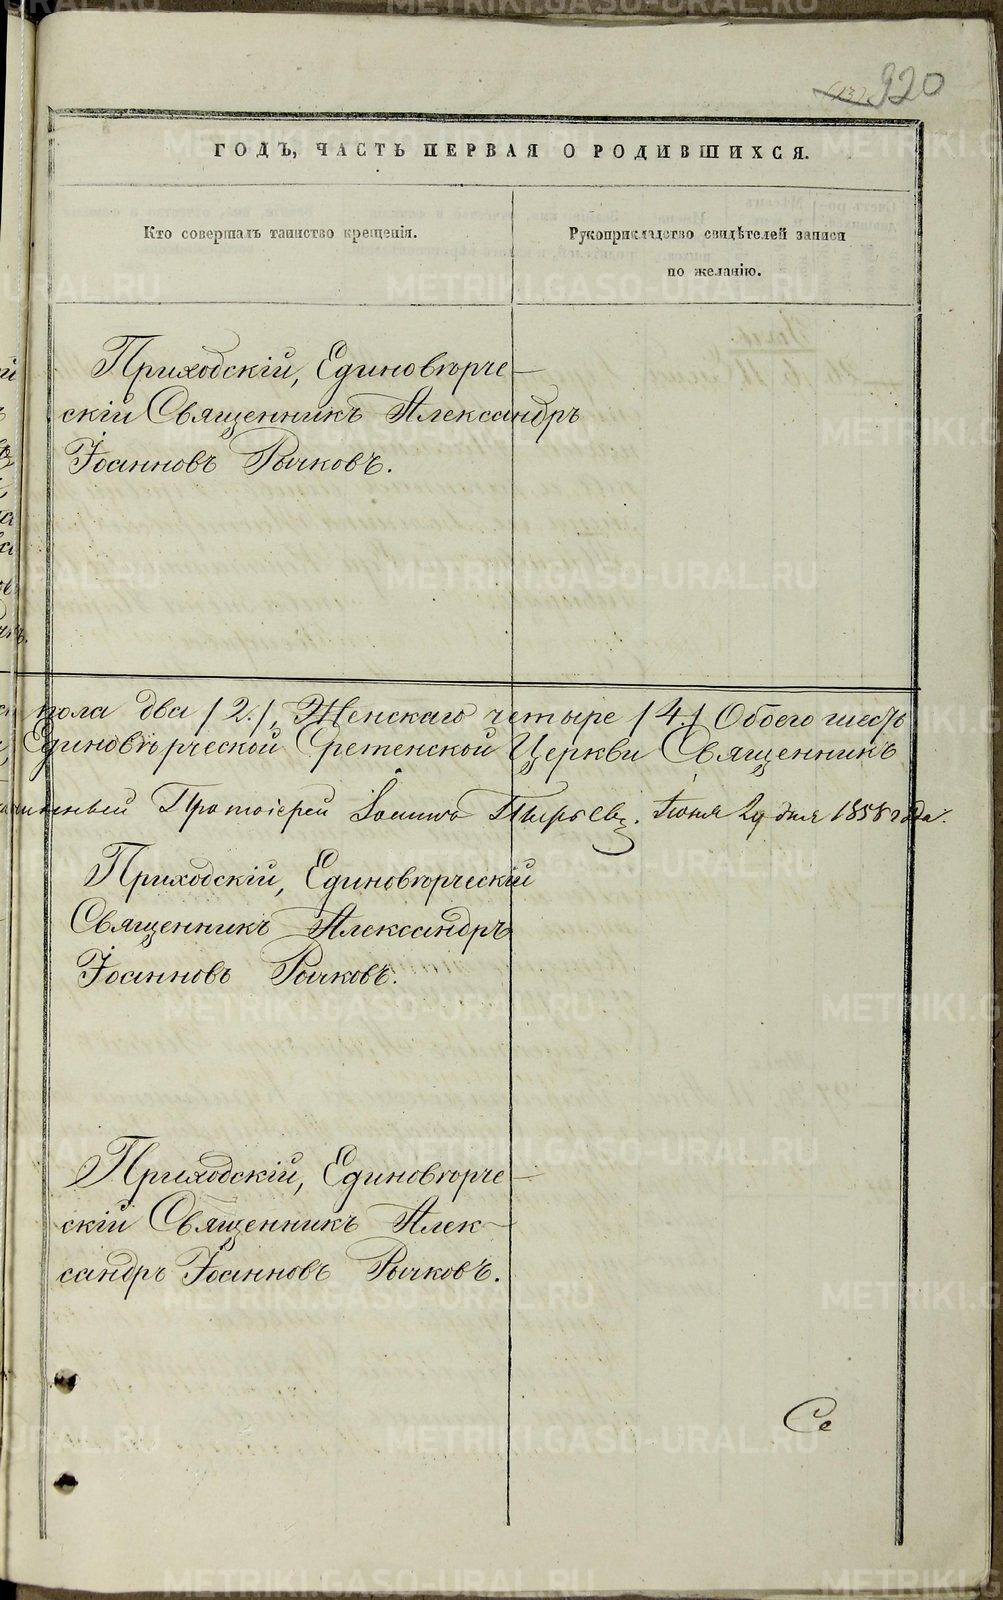 920
ГОДЪ, ЧАСТЬ ПЕРВАЯ О РОДИВШИХСЯ.
Кто совершалъ таинство крещенія.
Рукоприкладство свидѣтелей записи
по желанію.
Приходскій, Единовѣрче-
скій Священникъ Александръ
Іоанновъ Рычковъ.
пола два /2./, Женскаго четыре /4./ Обоего шесть
Единовѣрческой Срѣтенской Церкви Священникъ
Протоіерей Іоаннъ Пырьевъ. Іюня 29 дня 1858 года.
Приходскій, Единовѣрческій
Священникъ Александръ
Іоанновъ Рычковъ.
Приходскій, Единовѣрче-
скій Священникъ Алек-
сандръ Іоанновъ Рычковъ.
Се
METRIKI.GASO-URAL.RU